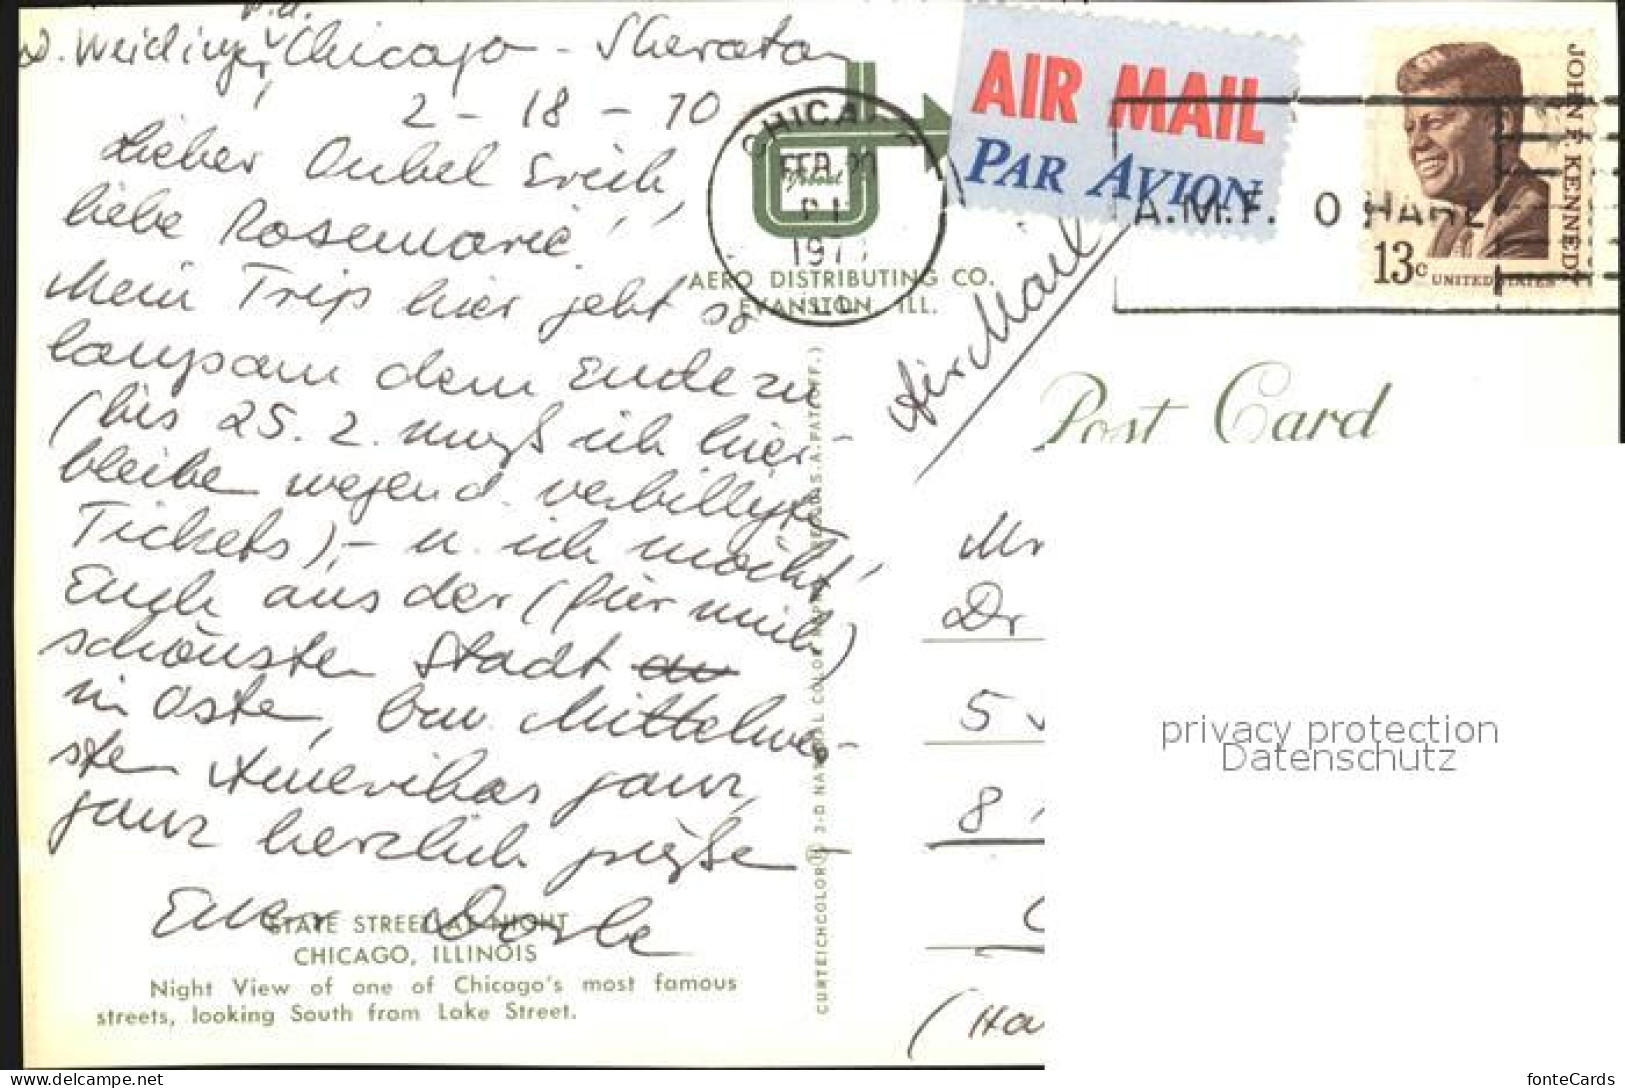 p.A.
D. Weidinger, Chicago - Sheraton
2 - 18 - 70
Lieber Onkel Erich,
liebe Rosemarie!
Mein Trip hier geht so
langsam dem Ende zu
(bis 25. 2. muß ich hier-
bleibe wegen d. verbilligten
Tickets), - u. ich möcht'
Euch aus der (für mich)
schönsten Stadt
in Osten, bzw. Mittelwe-
sten Amerikas ganz,
ganz herzlich grüßen -
Euer Dorle
STATE STREET AT NIGHT
CHICAGO, ILLINOIS
Night View of one of Chicago's most famous
streets, looking South from Lake Street.
CHICA
FEB 20
PM
197
ILL
AERO DISTRIBUTING CO.
EVANSTON, ILL.
CURTEICHCOLOR® 3-D NATURAL COLOR REPRODUCTION (REG. U.S.A. PAT. OFF.)
AIR MAIL
PAR AVION
A.M.F. O HARE
JOHN F. KENNEDY
13c UNITED STATES
Air Mail
Post Card
Mr
Dr
5
8
(Ha
privacy protection
Datenschutz
www.delcampe.net
fonteCards